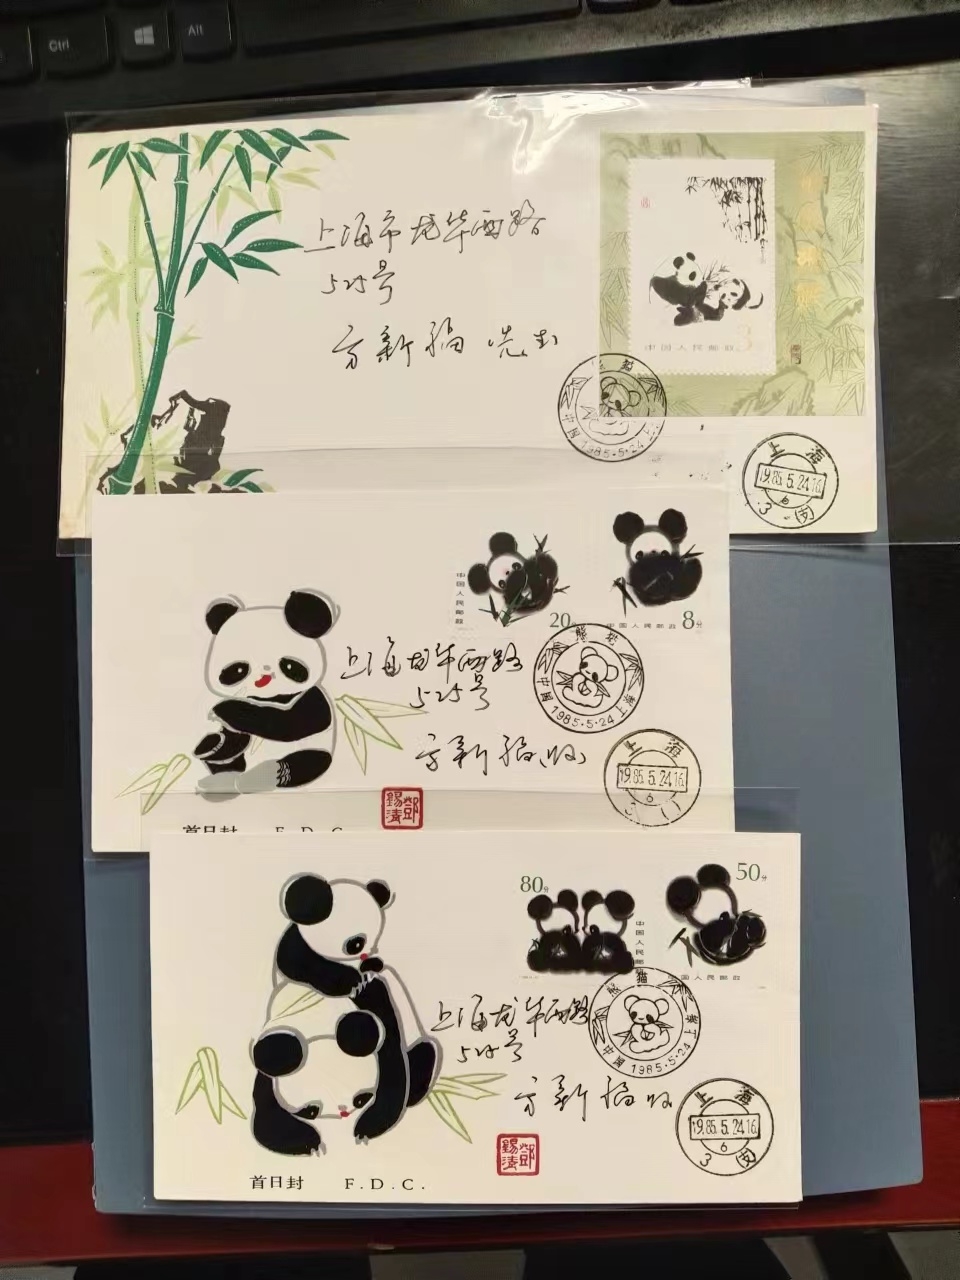 Ctrl
Alt
中国人民邮政
上海市龙华西路
525号
方新福 先生
熊猫
中国 1985·5·24 上海
上海
1985.5.24.16
3 (支)
中国人民邮政
20分
中国人民邮政 8分
上海龙华西路
525号
方新福 收
熊猫
中国 1985·5·24 上海
上海
1985.5.24.16
6
鄧錫清
首日封 F.D.C.
80分
中国人民邮政
50分
中国人民邮政
上海龙华西路
525号
方新福 收
熊猫
中国 1985·5·24
上海
1985.5.24.16
6
3 (支)
鄧錫清
首日封 F.D.C.